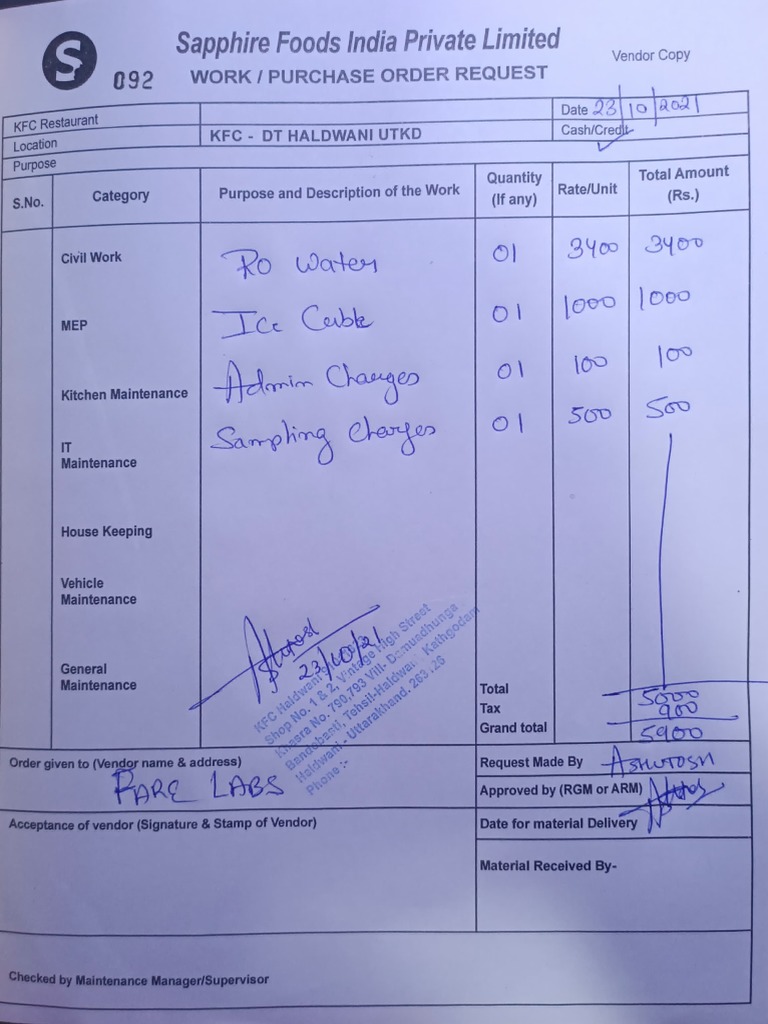 S
Sapphire Foods India Private Limited
Vendor Copy
092 WORK / PURCHASE ORDER REQUEST
KFC Restaurant
Date 23/10/2021
Location KFC - DT HALDWANI UTKD Cash/Credit
Purpose
S.No. Category Purpose and Description of the Work Quantity (If any) Rate/Unit Total Amount (Rs.)
Civil Work RO Water 01 3400 3400
MEP Ice Cube 01 1000 1000
Kitchen Maintenance Admin Charges 01 100 100
IT Maintenance Sampling Charges 01 500 500
House Keeping
Vehicle Maintenance
General Maintenance
23/10/21
KFC Haldwani
Shop No. 1 & 2, Vintage High Street
Khasra No. 790,793 Vill- Damuadhunga
Bandobasti, Tehsil-Haldwani Kathgodam
Haldwani - Uttarakhand. 263 126
Phone :-
Total 5000
Tax 900
Grand total 5900
Order given to (Vendor name & address) Request Made By ASHUTOSH
RARE LABS
Approved by (RGM or ARM)
Acceptance of vendor (Signature & Stamp of Vendor) Date for material Delivery
Material Received By-
Checked by Maintenance Manager/Supervisor